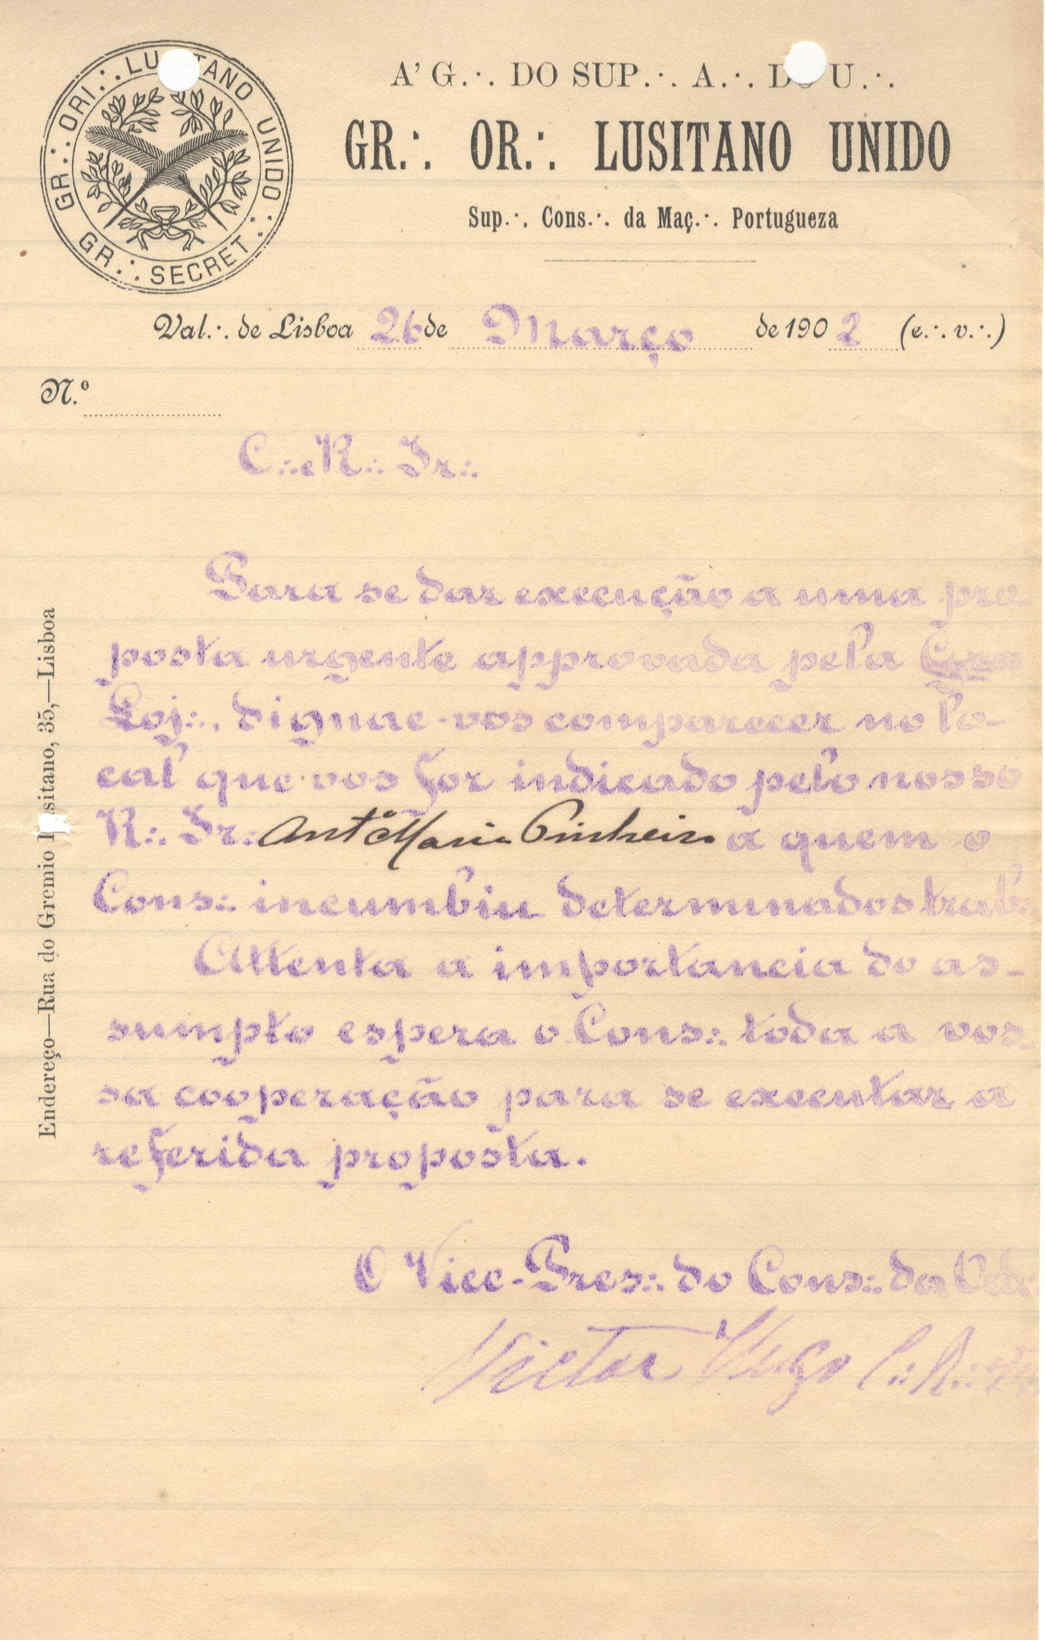 GR.·. ORI.·. LUSITANO UNIDO.·.
GR.·. SECRET.·.
A' G.·. DO SUP.·. A.·. DO U.·.
GR.·. OR.·. LUSITANO UNIDO
Sup.·. Cons.·. da Maç.·. Portugueza
Val.·. de Lisboa 26 de Março de 1902 (e.·. v.·.)
N.º
C.·. e R.·. Ir.·.
Para se dar execução a uma pro-
posta urgente approvada pela Gran
Loj.·., dignae-vos comparecer no lo-
cal que vos for indicado pelo nosso
R.·. Ir.·. Antº Maria Pinheiro a quem o
Cons.·. incumbiu determinados trab.·.
Attenta a importancia do as-
sumpto espera o Cons.·. toda a vos-
sa cooperação para se executar a
referida proposta.
O Vice-Pres.·. do Cons.·. da Ord.·.
Victor Hugo
Endereço—Rua do Gremio Lusitano, 35,—Lisboa